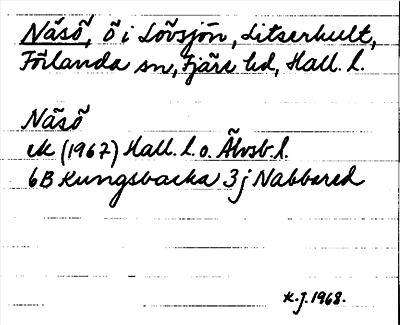 Näsö, ö i Lövsjön, Litserhult,
Förlanda sn, Fjäre hd, Hall. l.
Näsö
ek (1967) Hall. l. o. Älvsb. l.
6B Kungsbacka 3j Nabbared
K.J. 1968.